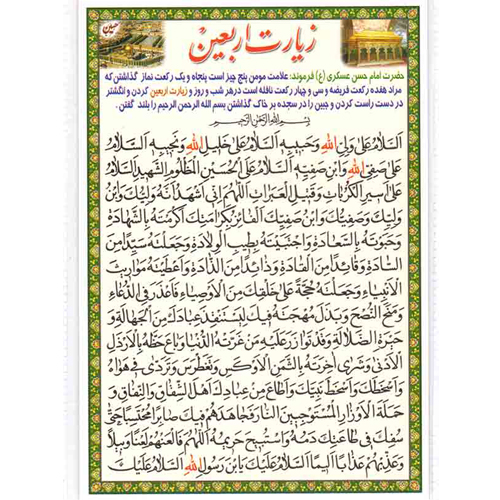 زیارت اربعین
حضرت امام حسن عسکری (ع) فرموند: علامت مومن پنج چیز است پنجاه و یک رکعت نماز گذاشتن که
مراد هفده رکعت فریضه و سی و چهار رکعت نافله است در هر شب و روز و زیارت اربعین کردن و انگشتر
در دست راست کردن و جبین را در سجده بر خاک گذاشتن بسم الله الرحمن الرحیم را بلند گفتن.
بِسْمِ اللهِ الرَّحْمنِ الرَّحیمِ
اَلسَّلامُ عَلی وَلِیِّ اللهِ وَحَبیبِهِ اَلسَّلامُ عَلی خَلیلِ اللهِ وَنَجیبِهِ اَلسَّلامُ
عَلی صَفِیِّ اللهِ وَابْنِ صَفِیِّهِ اَلسَّلامُ عَلی الْحُسَیْنِ الْمَظْلُومِ الشَّهیدِ اَلسَّلامُ
عَلی اَسیرِ الْکُرُباتِ وَقَتیلِ الْعَبَراتِ اَللّهُمَّ اِنّی اَشْهَدُ اَنَّهُ وَلِیُّکَ وَابْنُ
وَلِیِّکَ وَصَفِیُّکَ وَابْنُ صَفِیِّکَ الْفائِزُ بِکَرامَتِکَ اَکْرَمْتَهُ بِالشَّهادَةِ
وَحَبَوْتَهُ بِالسَّعادَةِ وَاجْتَبَیْتَهُ بِطیبِ الْوِلادَةِ وَجَعَلْتَهُ سَیِّداً مِنَ
السّادَةِ وَقائِداً مِنَ الْقادَةِ وَذائِداً مِنَ الذّادَةِ وَاَعْطَیْتَهُ مَواریثَ
الْاَنْبِیاءِ وَجَعَلْتَهُ حُجَّةً عَلی خَلْقِکَ مِنَ الْاَوْصِیاءِ فَاَعْذَرَ فِی الدُّعاءِ
وَمَنَحَ النُّصْحَ وَبَذَلَ مُهْجَتَهُ فیکَ لِیَسْتَنْقِذَ عِبادَکَ مِنَ الْجَهالَةِ وَ
حَیْرَةِ الضَّلالَةِ وَقَدْ تَوازَرَ عَلَیْهِ مَنْ غَرَّتْهُ الدُّنْیا وَباعَ حَظَّهُ بِالْاَرْذَلِ
الْاَدْنی وَشَری آخِرَتَهُ بِالثَّمَنِ الْاَوْکَسِ وَتَغَطْرَسَ وَتَرَدّی فی هَواهُ
وَاَسْخَطَکَ وَاَسْخَطَ نَبِیَّکَ وَاَطاعَ مِنْ عِبادِکَ اَهْلَ الشِّقاقِ وَالنِّفاقِ وَ
حَمَلَةَ الْاَوْزارِ الْمُسْتَوْجِبینَ النّارَ فَجاهَدَهُمْ فیکَ صابِراً مُحْتَسِباً حَتّی
سُفِکَ فی طاعَتِکَ دَمُهُ وَاسْتُبیحَ حَریمُهُ اَللّهُمَّ فَالْعَنْهُمْ لَعْناً وَبیلاً
وَعَذِّبْهُمْ عَذاباً اَلیماً اَلسَّلامُ عَلَیْکَ یَابْنَ رَسُولِ اللهِ اَلسَّلامُ عَلَیْکَ